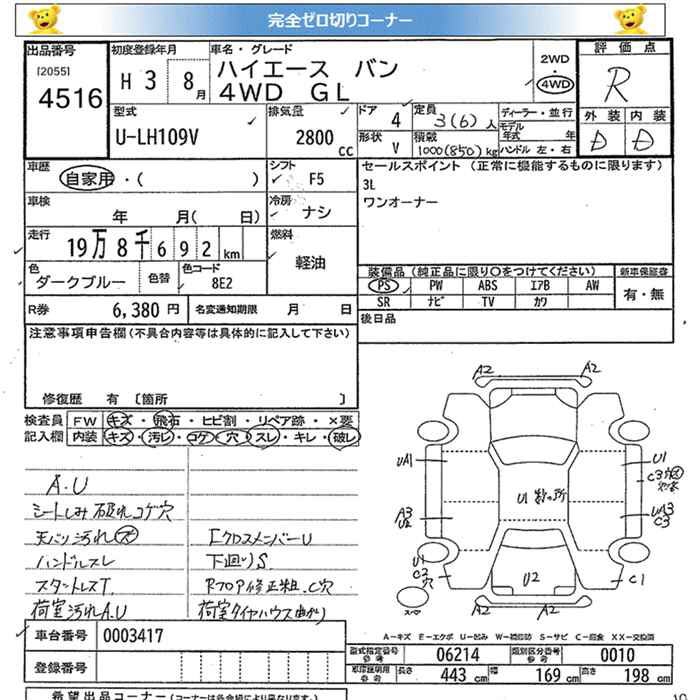 完全ゼロ切りコーナー
出品番号 初度登録年月 車名・グレード 評価点
[2055] 4516 H 3 8月 ハイエース バン 2WD R
4WD GL 4WD
型式 排気量 ドア 定員 ディーラー・並行 外装 内装
U-LH109V 2800 CC 4 3(6)人 モデル年式 年 D D
形状 V 積載 1000(850)kg ハンドル 左・右
車歴 シフト セールスポイント (正常に機能するものに限ります)
自家用・( ) F5 3L
車検 冷房 ワンオーナー
年 月( 日) ナシ
走行 燃料
19万8千692km 軽油
色 色替 色コード 装備品 (純正品に限り〇をつけてください) 新車保証書
ダークブルー 8E2 PS PW ABS エアB AW 有・無
SR ナビ TV カワ
R券 6,380円 名変通知期限 月 日 後日品
注意事項申告欄 (不具合内容等は具体的に記入して下さい)
修復歴 有 〔箇所 〕
検査員 FW キズ・飛石・ヒビ割・リペア跡・×要
記入欄 内装 キズ・汚レ・コゲ・穴・スレ・キレ・破レ
A2 A2
UA1 U1
C3
A3 U1 UA3
C3
U1
C2
穴 U2 C1
A2 A2
A.U
シートしみ 破れ コゲ穴
天バリ汚れ
ハンドルスレ
荷室汚れ A.U
クロスメンバーU
下廻りS
Rフロア修正粗.C穴
荷室タイヤハウス曲がり
A-キズ E-エクボ U-凹み W-補修跡 S-サビ C-腐食 XX-交換済
車台番号 0003417
登録番号
型式指定番号 参考 06214 類別区分番号 参考 0010
長さ 443 cm 幅 169 cm 高さ 198 cm
希望出品コーナー